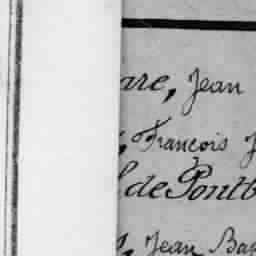 are, Jean
, François J
de Pontb
, Jean Bap